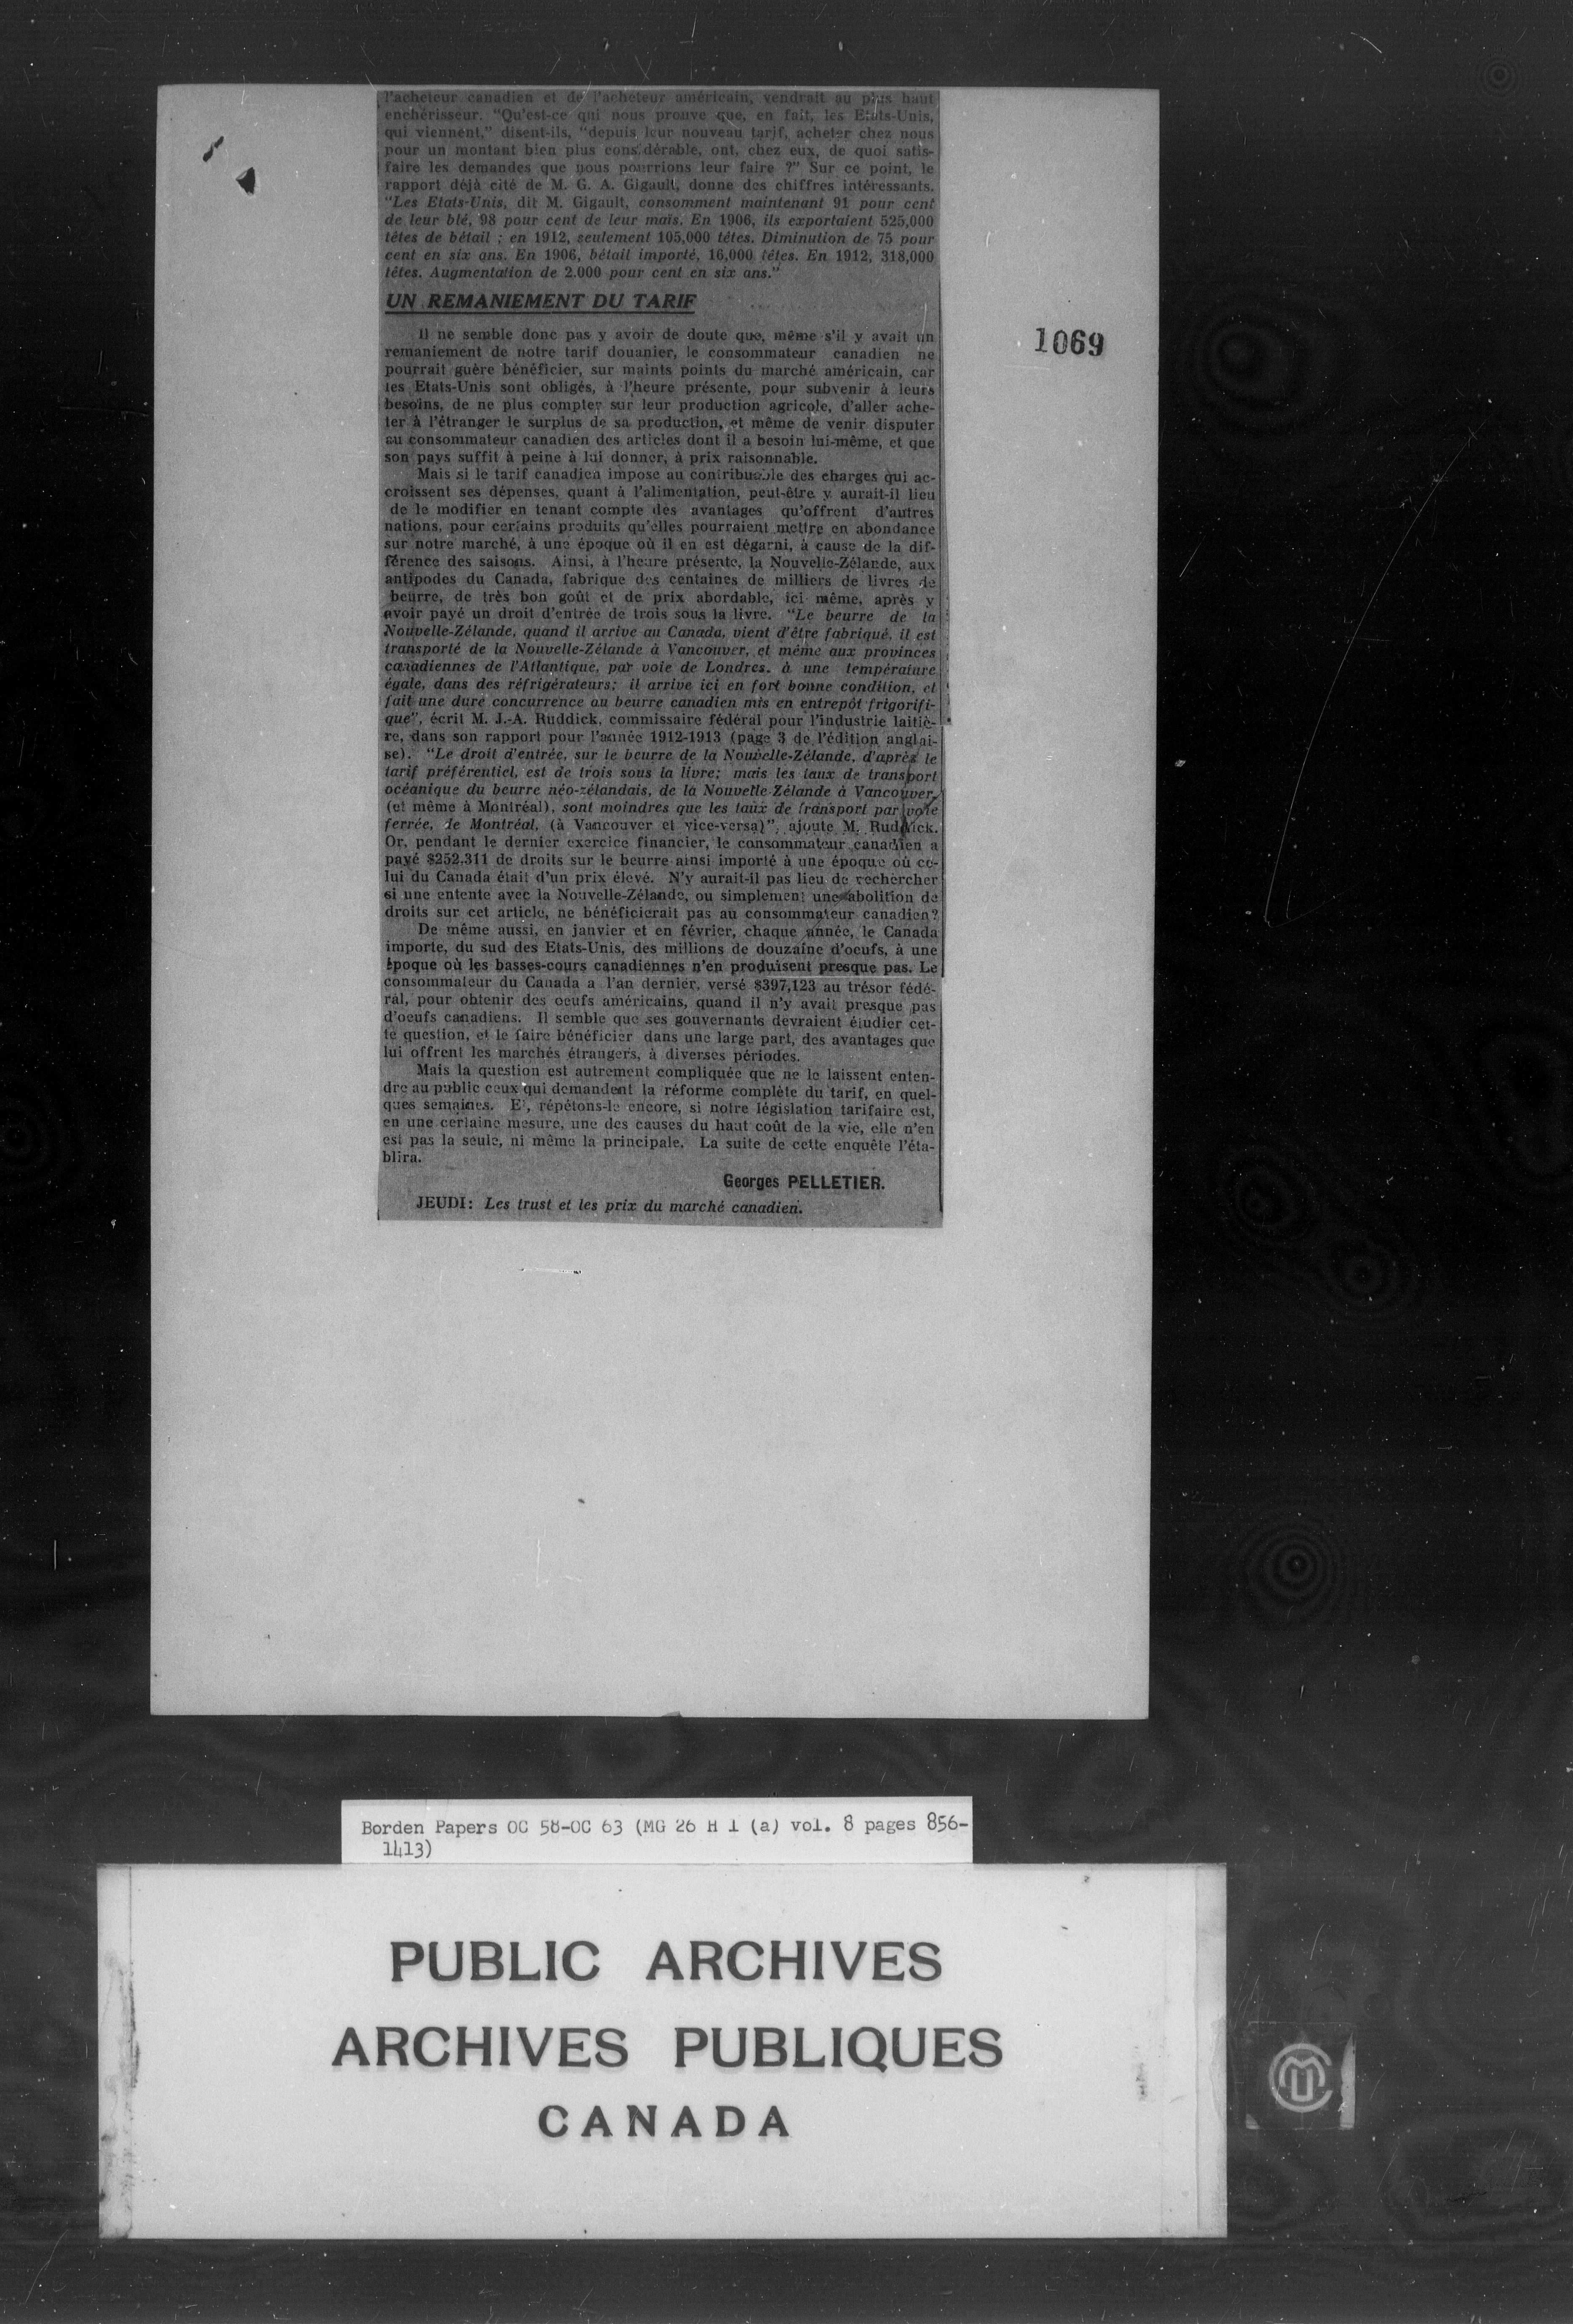 l'acheteur canadien et de l'acheteur américain, vendrait au plus haut
enchérisseur. "Qu'est-ce qui nous prouve que, en fait, les Etats-Unis,
qui viennent," disent-ils, "depuis leur nouveau tarif, acheter chez nous
pour un montant bien plus considérable, ont, chez eux, de quoi satis-
faire les demandes que nous pourrions leur faire ?" Sur ce point, le
rapport déjà cité de M. G. A. Gigault, donne des chiffres intéressants.
"Les Etats-Unis, dit M. Gigault, consomment maintenant 91 pour cent
de leur blé, 98 pour cent de leur maïs. En 1906, ils exportaient 525,000
têtes de bétail ; en 1912, seulement 105,000 têtes. Diminution de 75 pour
cent en six ans. En 1906, bétail importé, 16,000 têtes. En 1912, 318,000
têtes. Augmentation de 2.000 pour cent en six ans."
UN REMANIEMENT DU TARIF
Il ne semble donc pas y avoir de doute que, même s'il y avait un
remaniement de notre tarif douanier, le consommateur canadien ne
pourrait guère bénéficier, sur maints points du marché américain, car
les Etats-Unis sont obligés, à l'heure présente, pour subvenir à leurs
besoins, de ne plus compter sur leur production agricole, d'aller ache-
ter à l'étranger le surplus de sa production, et même de venir disputer
au consommateur canadien des articles dont il a besoin lui-même, et que
son pays suffit à peine à lui donner, à prix raisonnable.
Mais si le tarif canadien impose au contribuable des charges qui ac-
croissent ses dépenses, quant à l'alimentation, peut-être y aurait-il lieu
de le modifier en tenant compte des avantages qu'offrent d'autres
nations, pour certains produits qu'elles pourraient mettre en abondance
sur notre marché, à une époque où il en est dégarni, à cause de la dif-
férence des saisons. Ainsi, à l'heure présente, la Nouvelle-Zélande, aux
antipodes du Canada, fabrique des centaines de milliers de livres de
beurre, de très bon goût et de prix abordable, ici même, après y
avoir payé un droit d'entrée de trois sous la livre. "Le beurre de la
Nouvelle-Zélande, quand il arrive au Canada, vient d'être fabriqué, il est
transporté de la Nouvelle-Zélande à Vancouver, et même aux provinces
canadiennes de l'Atlantique, par voie de Londres, à une température
égale, dans des réfrigérateurs; il arrive ici en fort bonne condition, et
fait une dure concurrence au beurre canadien mis en entrepôt frigorifi-
que", écrit M. J.-A. Ruddick, commissaire fédéral pour l'industrie laitiè-
re, dans son rapport pour l'année 1912-1913 (page 3 de l'édition anglai-
se). "Le droit d'entrée, sur le beurre de la Nouvelle-Zélande, d'après le
tarif préférentiel, est de trois sous la livre; mais les taux de transport
océanique du beurre néo-zélandais, de la Nouvelle Zélande à Vancouver,
(et même à Montréal), sont moindres que les taux de transport par voie
ferrée, de Montréal, (à Vancouver et vice-versa)", ajoute M. Ruddick.
Or, pendant le dernier exercice financier, le consommateur canadien a
payé $252.311 de droits sur le beurre ainsi importé à une époque où ce-
lui du Canada était d'un prix élevé. N'y aurait-il pas lieu de rechercher
si une entente avec la Nouvelle-Zélande, ou simplement une abolition de
droits sur cet article, ne bénéficierait pas au consommateur canadien?
De même aussi, en janvier et en février, chaque année, le Canada
importe, du sud des Etats-Unis, des millions de douzaine d'oeufs, à une
époque où les basses-cours canadiennes n'en produisent presque pas. Le
consommateur du Canada a l'an dernier, versé $397,123 au trésor fédé-
ral, pour obtenir des oeufs américains, quand il n'y avait presque pas
d'oeufs canadiens. Il semble que ses gouvernants devraient étudier cet-
te question, et le faire bénéficier dans une large part, des avantages que
lui offrent les marchés étrangers, à diverses périodes.
Mais la question est autrement compliquée que ne le laissent enten-
dre au public ceux qui demandent la réforme complète du tarif, en quel-
ques semaines. Et, répétons-le encore, si notre législation tarifaire est,
en une certaine mesure, une des causes du haut coût de la vie, elle n'en
est pas la seule, ni même la principale. La suite de cette enquête l'éta-
blira.
Georges PELLETIER.
JEUDI: Les trust et les prix du marché canadien.
1069
Borden Papers OC 58-OC 63 (MG 26 H 1 (a) vol. 8 pages 856-
1413)
PUBLIC ARCHIVES
ARCHIVES PUBLIQUES
CANADA